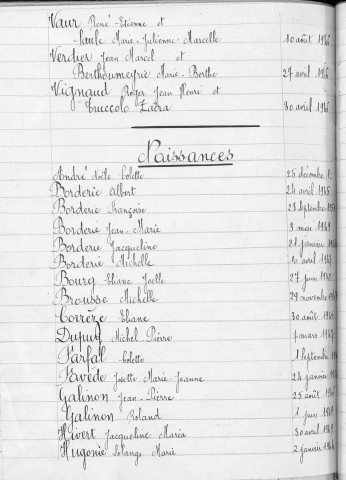 Vaur René-Etienne et
Paule Marie-Julienne Marcelle 10 août 1946
Verdier Jean Marcel et
Berthoumeyrie Marie-Berthe 27 avril 1946
Vignaud Roger Jean Henri et
Truccolo Zaïra 30 avril 1946
Naissances
André Noële Colette 25 décembre
Borderie Albert 24 avril 1945
Borderie Françoise 28 septembre
Borderie Jean-Marie 3 mai 1949
Borderie Jacqueline 21 janvier
Borderie Michelle 10 avril
Bourg Eliane Joelle 27 juin
Brousse Michelle 29 novembre
Corrèze Eliane 30 août
Dupuy Michel-Pierre 7 mars
Farfal Colette 1 septembre
Favède Josette Marie-Jeanne 24 janvier
Galinon Jean-Pierre 23 août
Galinon Roland 1 juin
Hivert Jacqueline Maria 30 avril 1949
Hugonie Solange Marie 2 janvier